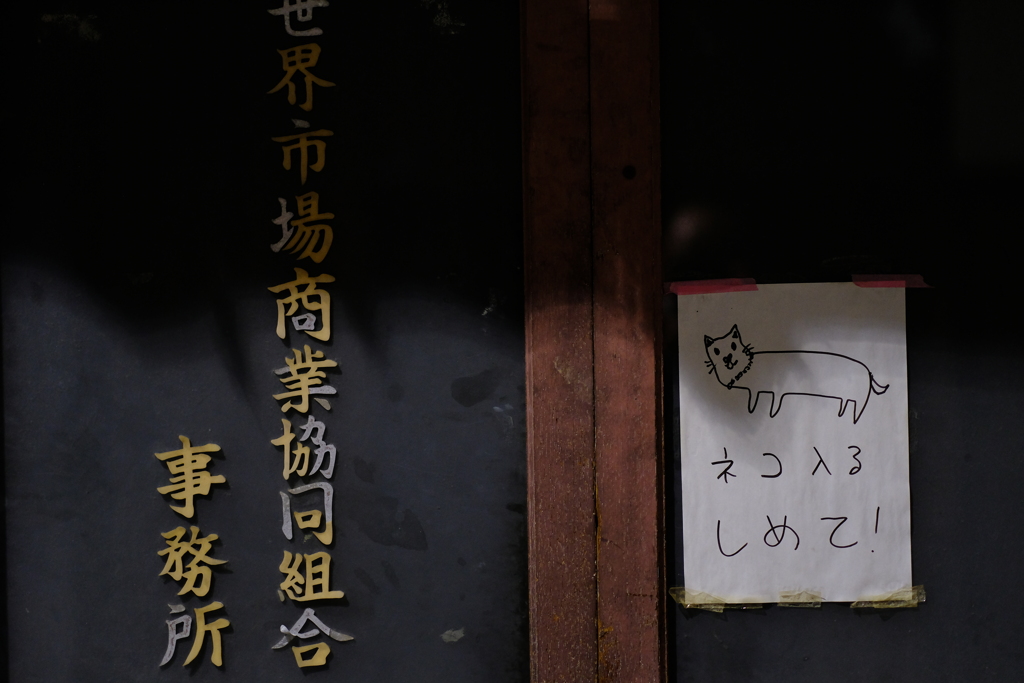 世界市場商業協同組合
事務所
ネコ入る
しめて!